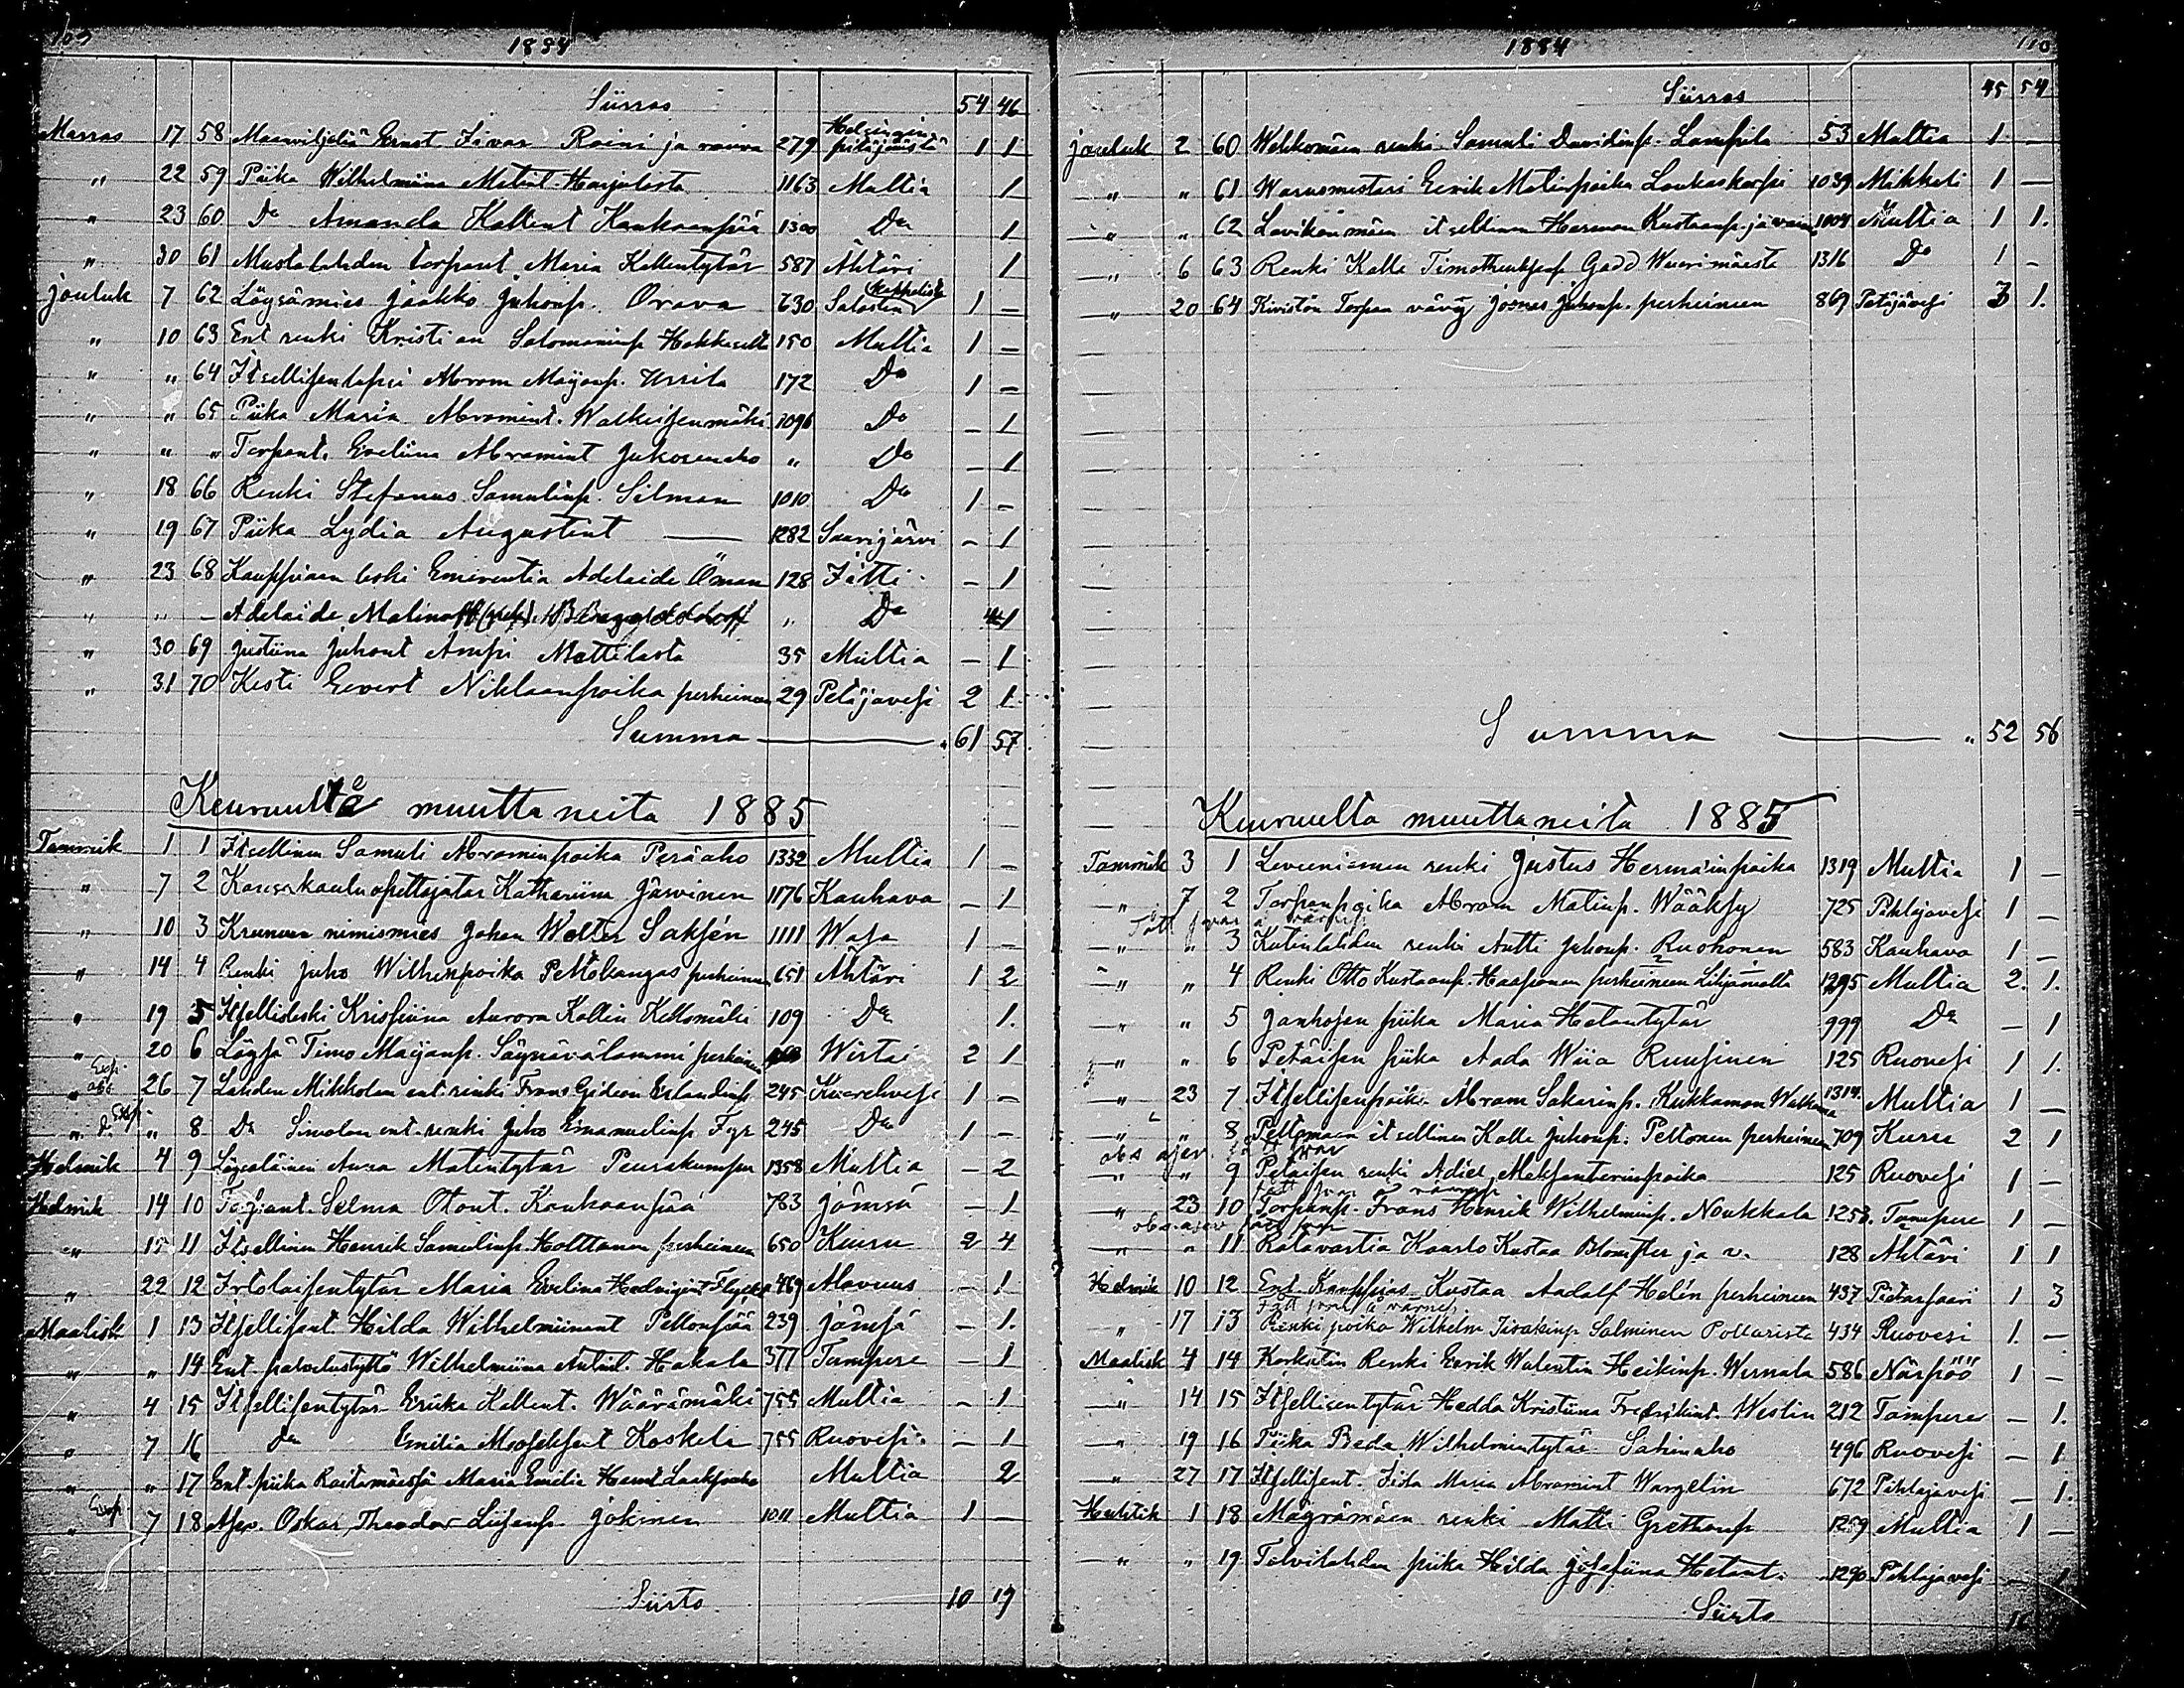 1884
Siirros 54 46
Marras 17 58 Maanviljeliä Ernst Iivar Roini ja rouva 279 Helsingin pitäjästä 1 1
" 22 59 Piika Wilhelmiina Matint. Harjulasta 1163 Multia 1
" 23 60 Do Amanda Kallent Kaukaanpää 1300 Do 1
" 30 61 Mustalahden torpant. Maria Kallentytär 587 Ähtäri 1
Jouluk 7 62 Löysämies Jaakko Juhonp. Orava 630 1 –
" 10 63 Ent renki Kristian Salomoninp 150 Multia 1 –
" " 64 Itsellisenlapsi Abram Maijanp. Ursila 172 Do 1 –
" " 65 Piika Maria Abramint. Walkeisenmäki 1096 Do – 1
" " " Torpant. Eveliina Abramint Jukosenaho " Do – 1
" 18 66 Renki Stefanus Samulinp. Silman 1010 Do 1 –
" 19 67 Piika Lydia Augustint — 1282 Saarijärvi – 1
" 23 68 Kauppiaan leski Emerentia Adelaide Öman 128 Iitti – 1
" " – Adelaide " Do 1
" 30 69 Justiina Juhont Ampi Mattilasta 35 Multia – 1
" 31 70 Kesti Eevert Niklaanpoika perheineen 29 Petäjävesi 2 1
Summa — 61 57
Keuruultå muuttaneita 1885
Tammik 1 1 Itsellinen Samuli Abraminpoika Peräaho 1332 Multia 1 –
" 7 2 Kansakoulu opettajatar Kathariina Järvinen 1176 Kauhava – 1
" 10 3 Kruunun nimismies Johan Wolter Saksén 1111 Wasa 1 –
" 14 4 Renki Juho Wilhenpoika Peltokangas perheineen 651 Ähtäri 1 2
" 19 5 Itsellisleski Krisfiina Aurora Kallin Kellomäki 109 Do 1.
" 20 6 Löysä Timo Maijanp. Säynävälammi Wirtai 2 1
" 26 7 Lahden Mikkolan ent. renki Frans Gideon Erlandinp 245 Kuorehvesi 1 –
" " 8 Do Simolan ent. renki Juho Emanuelinp Fyr 245 Do 1 –
Helmik 4 9 Anna Matintytär Peurakumpu 1358 Multia – 2
Helmik 14 10 Torpant. Selma Otont. Kaukaanpää 783 Jämsä – 1
" 15 11 Itsellinen Henrik Samulinp. Holttanen perheineen 650 Kuru 2 4
" 22 12 Irtolaisentytär Maria Evelina 469 Alavuus – 1
Maalisk 1 13 Itsellisent. Hilda Wilhelmiinant Peltonpää 239 Jämsä – 1.
" " 14 Ent. palvelustyttö Wilhelmiina Antint. Hakala 377 Tampere – 1
" 4 15 Itsellisentytär Eriika Kallent. Wäärämäki 755 Multia – 1
" 7 16 Do Emilia Koskela 755 Ruovesi – 1
" " 17 Ent. piika Maria Emilia Multia 2
" 7 18 Oskar Theodor Jokinen 1011 Multia 1 –
Siirto 10 19
1884 110
Siirros 45 54
Jouluk 2 60 renki Samuli Davidinp. Lampila 53 Multia 1 –
" " 61 Waruomestari Eerik Matinpoika Laukaskorpi 1039 Mikkeli 1 –
" " 62 Lavikonmäen itsellinen Herman Kustaanp. ja vaim. 1004 Multia 1 1.
" 6 63 Renki Kalle Gadd Wuorimäestä 1316 Do 1 –
" 20 64 Kivistön Torpan vävy Joonas Juhonp. perheineen 869 Petäjävesi 3 1.
Summa — 52 56
Keuruulta muuttaneita 1885
Tammik 3 1 renki Justus Hermaninpoika 1319 Multia 1 –
" 7 2 Torpanpoika Abram Matinp. Wääksy 725 Pihlajavesi 1 –
" " 3 Kutinlahden renki Antti Juhonp. Ruohonen 583 Kauhava 1 –
" " 4 Renki Otto Kustaanp. Haaponen perheineen 1295 Multia 2. 1.
" " 5 Janhosen piika Maria Hetantytär 999 Do – 1
" " 6 Petäisen piika Aada Wiia Ruusinen 125 Ruovesi 1 1.
" 23 7 Itsellisenpoika Abram Sakarinp. Kukkamon 1314 Multia 1 –
" " 8 Peltomaan itsellinen Kalle Juhonp. Peltonen perheineen 709 Kuru 2 1
" " 9 Petäisen renki Adiel Aleksanterinpoika 125 Ruovesi 1 –
" 23 10 Torpanp. Frans Henrik Wilhelminp. Noukkala 1258. Tampere 1 –
" " 11 Ratavartia Kaarlo Kustaa Blomster ja v. 128 Ähtäri 1 1
Helmik 10 12 Ent. Kauppias Kustaa Aadolf Helén perheineen 437 Pietarsaari 1 3
" 17 13 Renki poika Wilhelm Iisakinp Salminen Pollarista 434 Ruovesi 1. –
Maalisk 4 14 Korkatin Renki Eerik Walentin Heikinp. Wernala 586 Närpöö 1 –
" 14 15 Itsellisentytär Hedda Kristiina Fredrikint. Westin 212 Tampere – 1.
" 19 16 Piika Beda Wilhelmintytär Sahinaho 496 Ruovesi – 1
" 27 17 Itsellisent. Maria Abramint Wangelin 672 Pihlajavesi – 1.
Huhtik 1 18 Mägrämäen renki Matti 1259 Multia 1 –
" " 19 Talvilahden piika Hilda Josefiina Hetant. 1290 Pihlajavesi – 1
Siirto